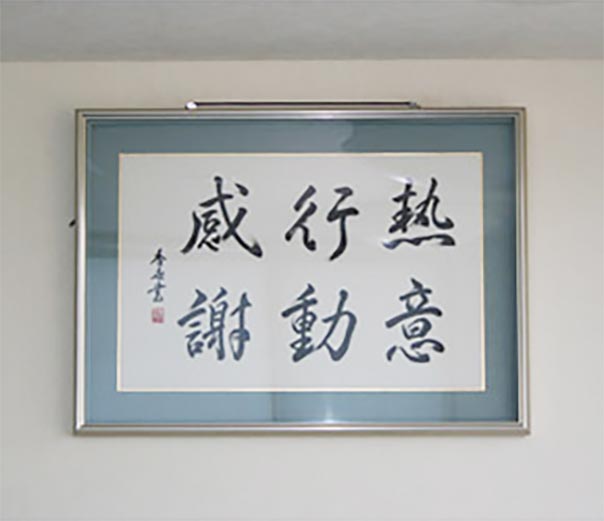 熱意
行動
感謝